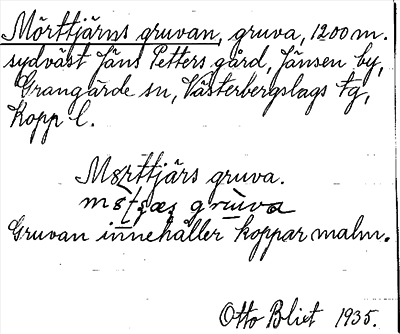 Mörttjärns gruvan, gruva, 1200 m.
sydväst Jäns Petters gård, Jänsen by,
Grangärde sn, Västerbergslags tg,
Kopp l.
Mørttjärs gruva.
gruva
Gruvan innehåller kopparmalm.
Otto Blixt 1935.